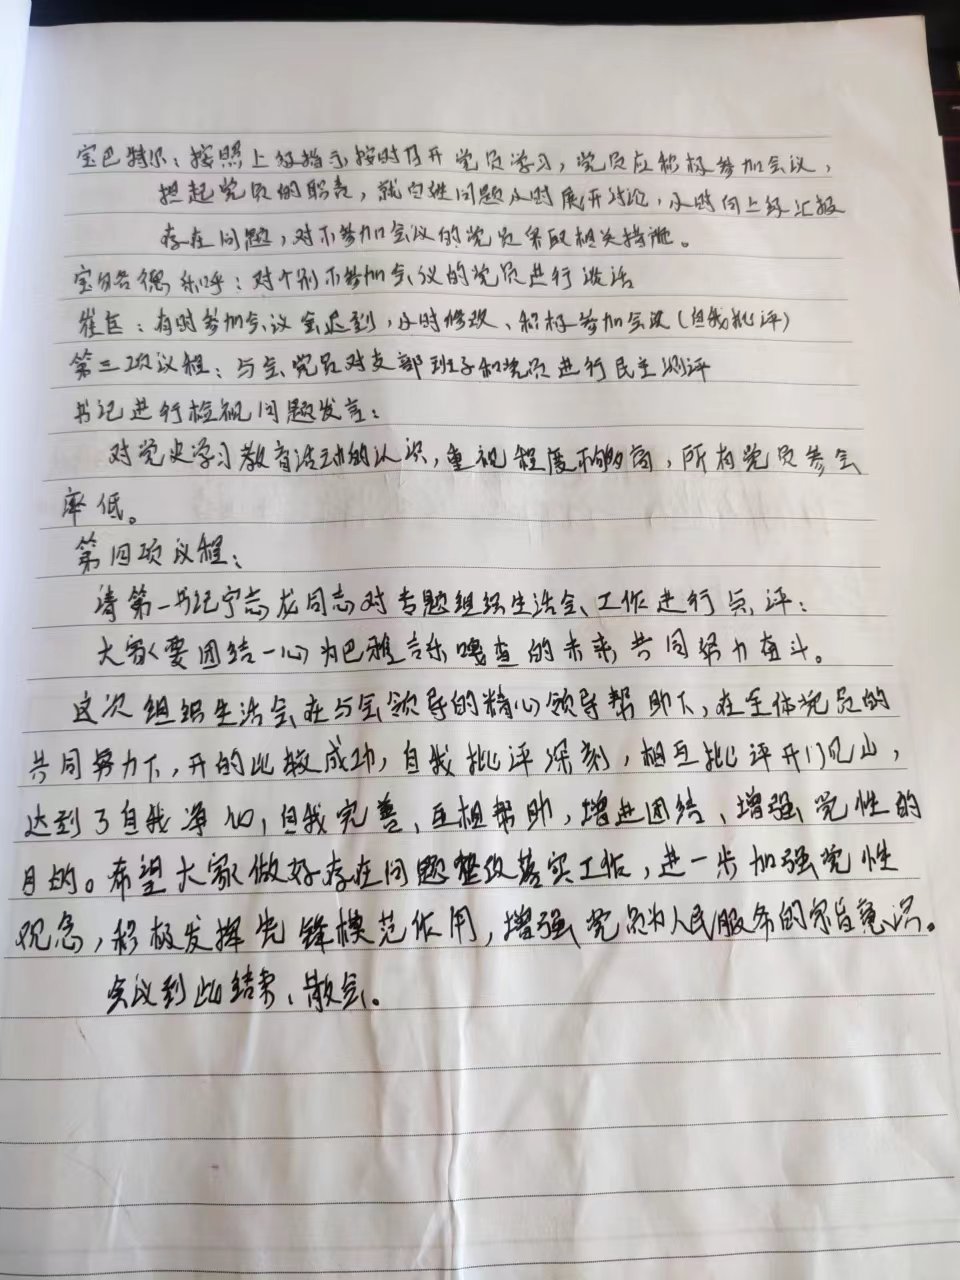 宝巴特尔：按照上级指示按时召开党员学习，党员应积极参加会议，
担起党员的职责，就实难问题及时展开讨论，及时向上级汇报
存在问题，对不参加会议的党员采取相关措施。
德 ：对个别不参加会议的党员进行谈话
崔臣：有时参加会议会迟到，及时修改、积极参加会议（自我批评）
第三项议程：与会党员对支部班子和党员进行民主测评
书记进行检视问题发言：
对党史学习教育活动的认识，重视程度不够高，所有党员参会
率低。
第四项议程：
请第一书记宁志龙同志对专题组织生活会、工作进行点评：
大家要团结一心为巴雅吉乐嘎查的未来共同努力奋斗。
这次组织生活会在与会领导的精心领导帮助下，在全体党员的
共同努力下，开的比较成功，自我批评深刻，相互批评开门见山，
达到了自我净化，自我完善、互相帮助，增进团结、增强党性的
目的。希望大家做好存在问题整改落实工作，进一步加强党性
观念，积极发挥先锋模范作用，增强党员为人民服务的宗旨意识。
会议到此结束、散会。